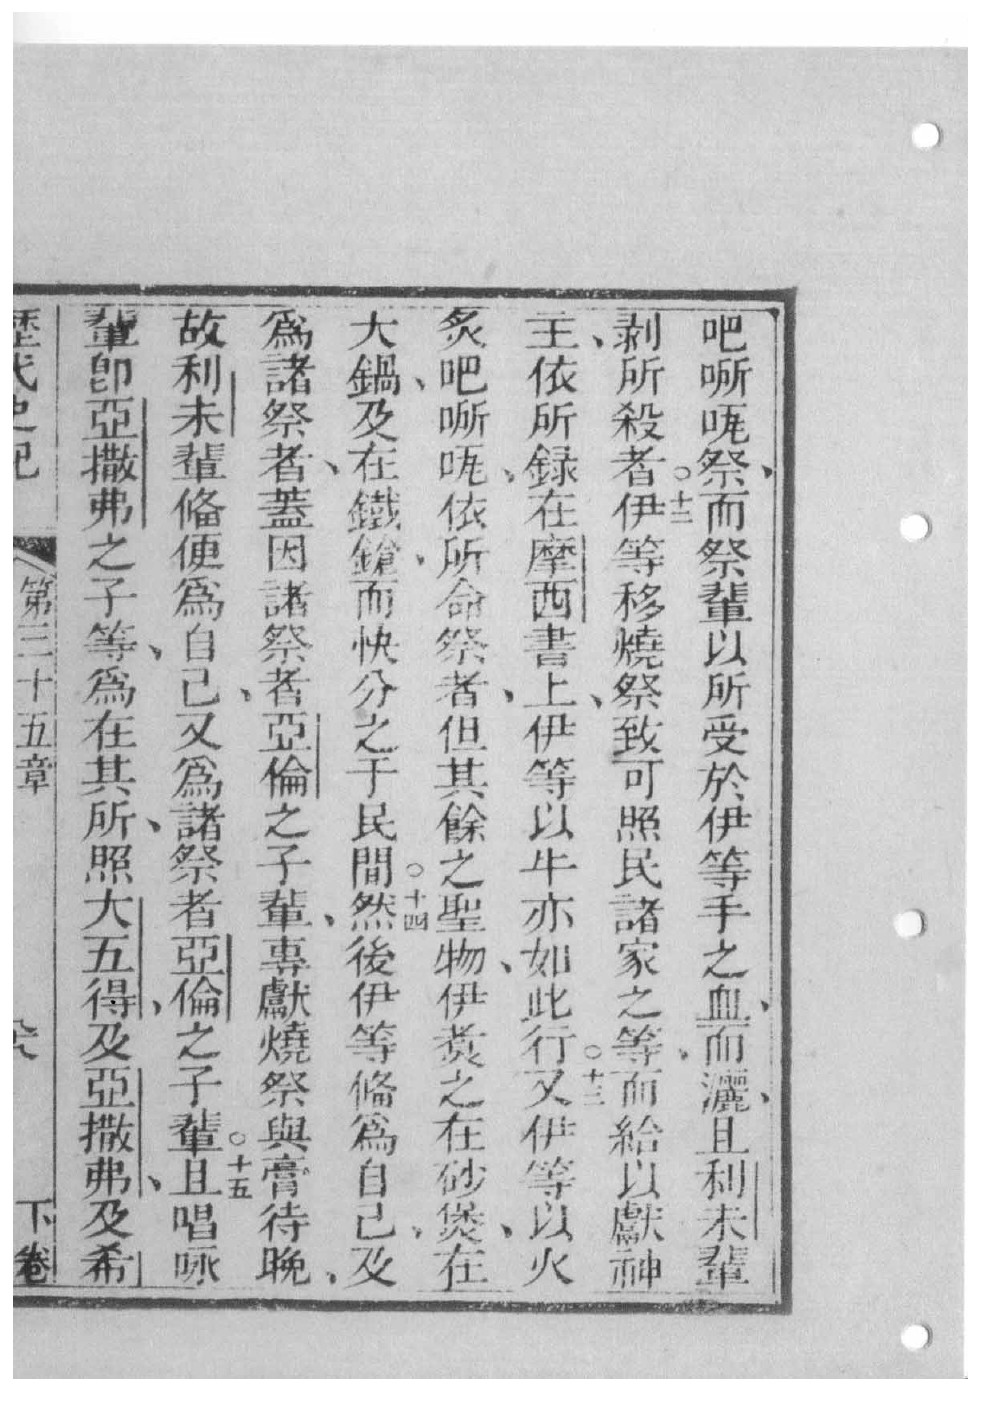 吧𠵽𠱥祭、而祭輩以所受於伊等手之血、而灑、且利未輩
剥所殺者○十二伊等移燒祭致可照民諸家之等、而給以獻神
主、依所録在摩西書上、伊等以牛亦如此行○十三又伊等以火
炙吧𠵽𠱥、依所命祭者、但其餘之聖物、伊煑之在砂煲、在
大鍋、及在鐵鎗、而快分之于民間○十四然後伊等俻爲自己、及
爲諸祭者、蓋因諸祭者亞倫之子輩、專獻燒祭與膏待晩、
故利未輩俻便爲自己、又爲諸祭者亞倫之子輩○十五且唱咏
輩卽亞撒弗之子等、爲在其所、照大五得、及亞撒弗、及希
歷代史記 第三十五章 下卷